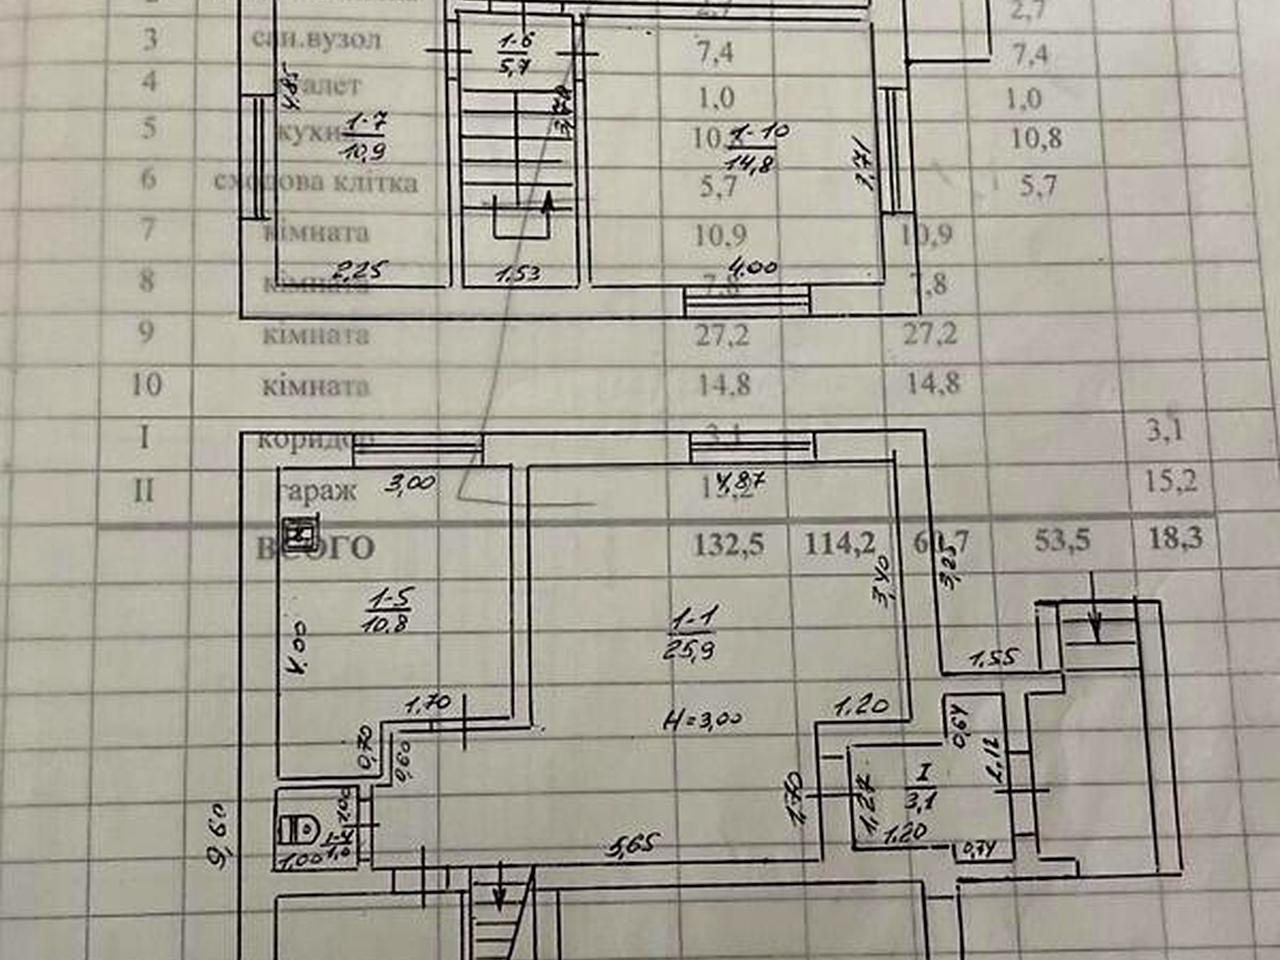 2,7
3 сан.вузол 7,4 7,4
4 туалет 1,0 1,0
5 кухня 10,8 10,8
6 сходова клітка 5,7 5,7
7 кімната 10,9 10,9
8 кімната 7,8 7,8
9 кімната 27,2 27,2
10 кімната 14,8 14,8
I коридор 3,1 3,1
II гараж 15,2 15,2
ВСЬОГО 132,5 114,2 60,7 53,5 18,3
1-6
5,7
4.85
3,70
1-7
10,9
1-10
14,8
3,71
2,25
1.53
4.00
3,00
4,87
3,40
3,25
1-5
10.8
1-1
25,9
4.00
1.55
1,70
H=3,00
1.20
0,64
0,70
0,60
2,12
I
3,1
1,70
1,27
9,60
1,00
1-4
1,0
1,00
5,65
1,20
0,74